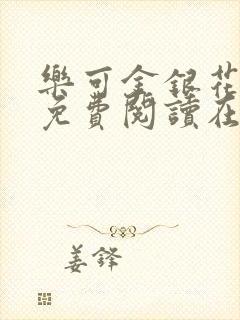 樂可金銀花
免費閱讀在
姜鋒